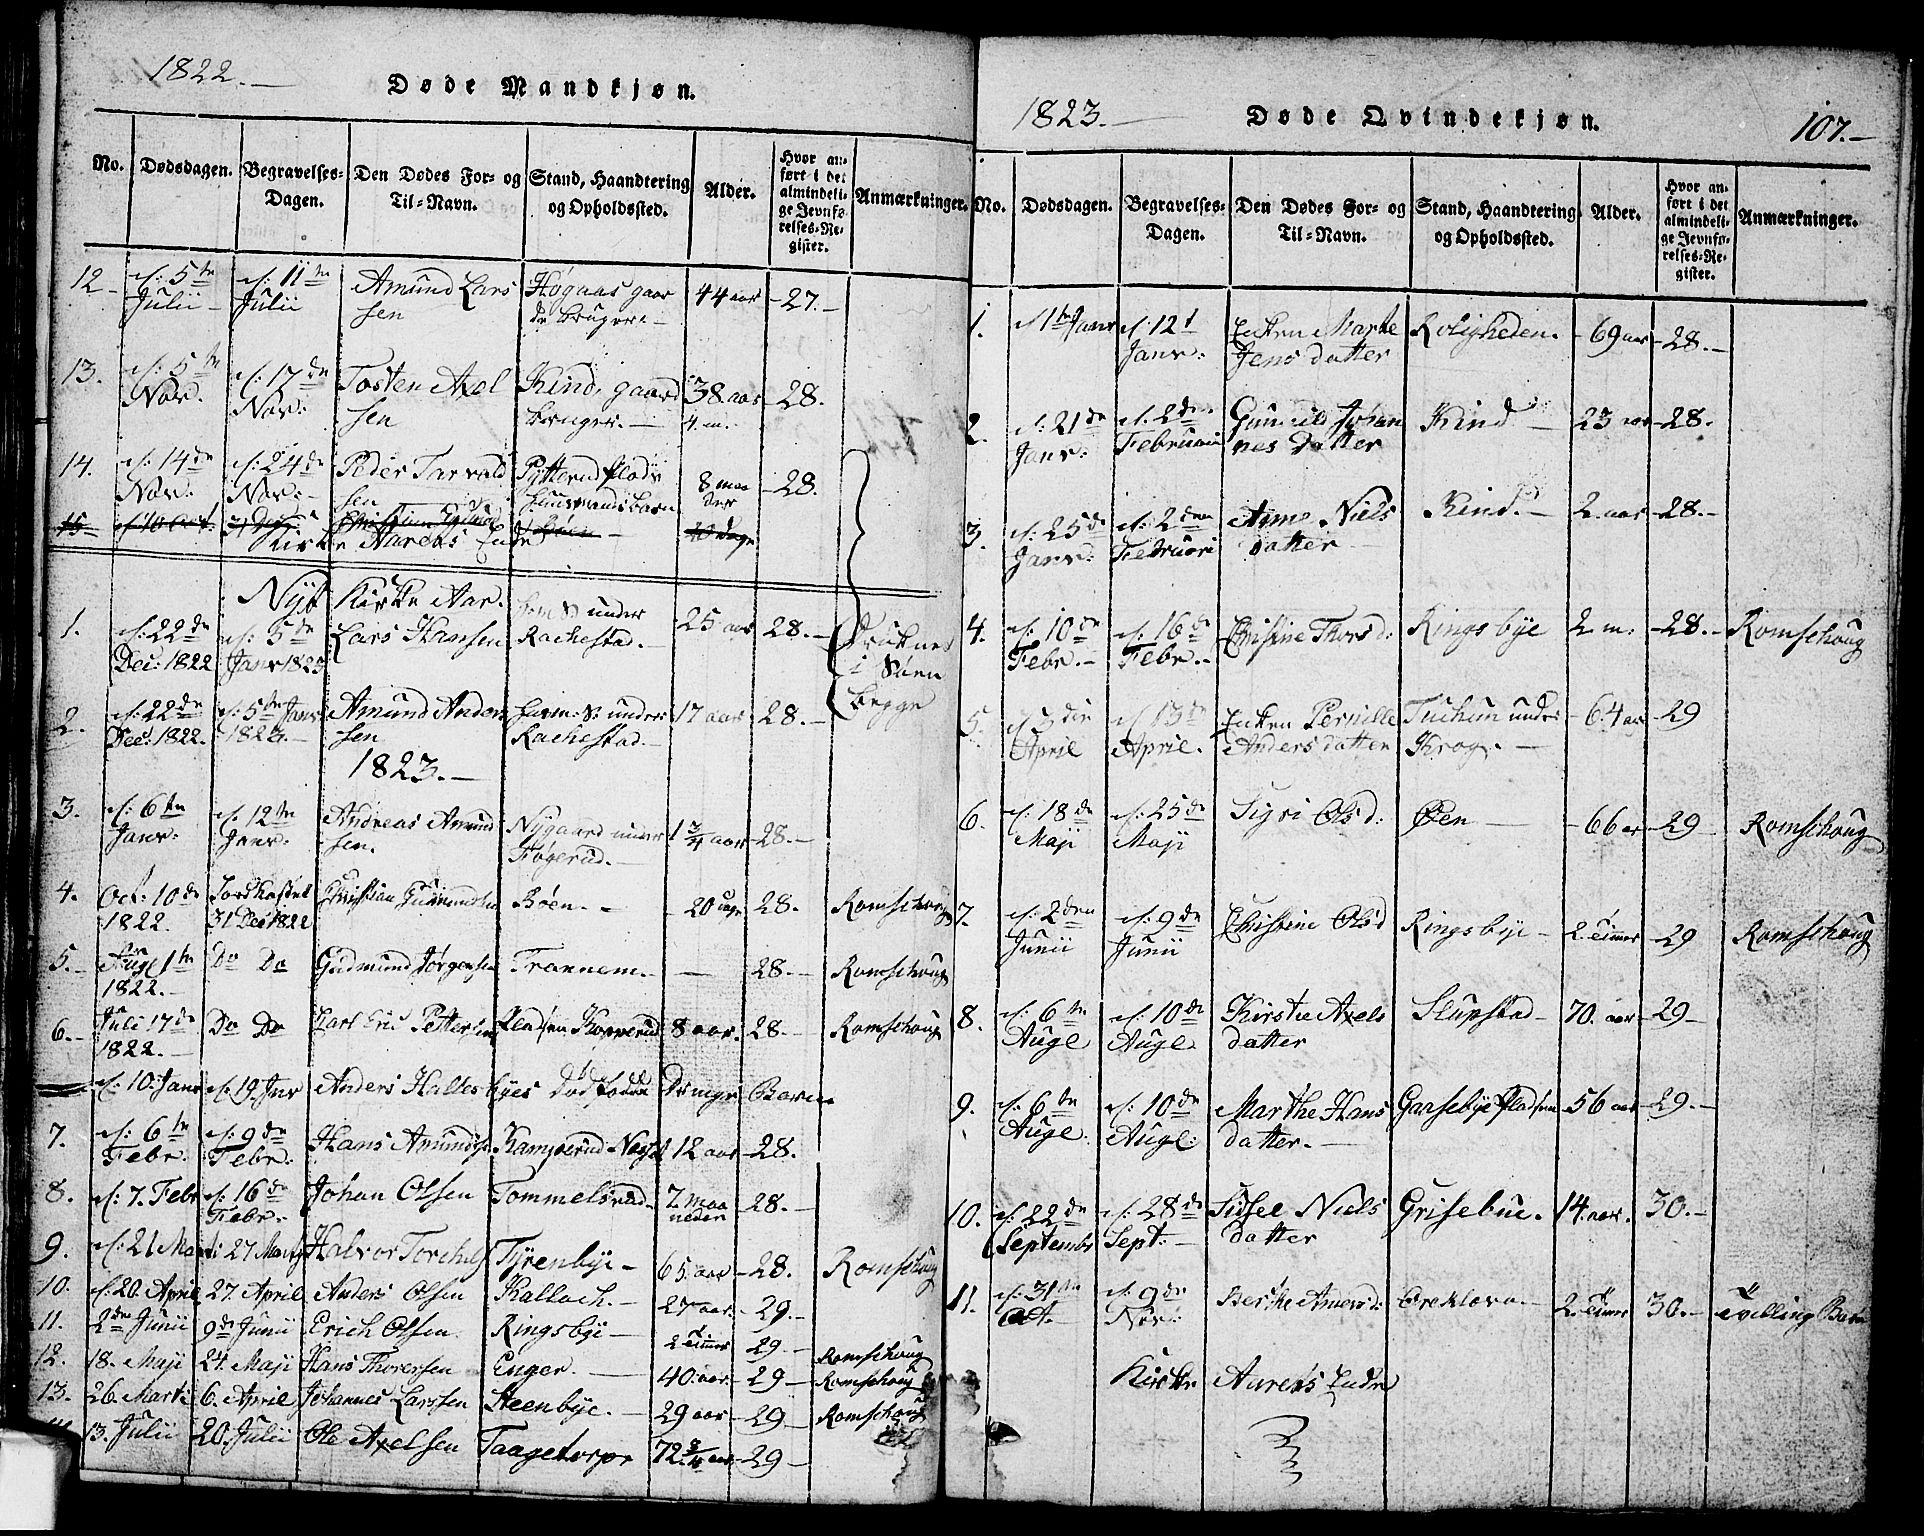 1822.
Døde Mandkjøn.
No. Dødsdagen. Begravelses-Dagen. Den Dødes For- og Til-Navn. Stand, Haandtering og Opholdssted. Alder. Hvor anført i det almindelige Jevnførelses-Register. Anmærkninger.
12 d: 5te Julii d: 11te Julii Amund Larssen Høgaas gaardebruger 44 aar 27.
13. d: 5te Nov. d: 17de Nov. Tosten Axelsen Kind, gaardbruger. 38 aar 4. m. 28.
14. d: 14de Nov. d: 24de Nov: Peder Tarvaldsen Huusmands Barn 8 maaneder 28.
15 d 10 Oct. 31 Dec. Christian Gudmunds Bøen 20 dage
Kirke Aarets Ende
Nyt Kirke Aar.
1. d: 22de Dec: 1822 d: 5te Janr 1823 Lars Hansen under Rachestad. 25 aar 28. Druknet i Søen begge
2. d: 22de Dec: 1822. d: 5te Janr 1823. Amund Andersen under Rachestad. 17 aar 28.
1823.
3. d: 6te Janr: d: 12te Janr: Andreas Amundsen. Nygaard under Føgerud. 1 3/4 aar 28.
4. Oct: 10de 1822. Jordkastet 31 Dec 1822 Christian Gudmundsen Bøen. 20 dage 28. Romschoug
5. Aug 1te 1822. Do Do Gudmund Jørgensen Trannem. 28. Romschoug
6. Juli 17de 1822. Do Do Carl Eric Pettersen Pladsen Kopperud 8 aar. 28. Romschoug
d: 10. Janr d: 19. Jnr Anders Hallesbyes Dødfødde Drenge Barn
7. d: 6te Febr. d: 9de Febr: Hans Amunds. 12 aar 28.
8. d: 7. Febr d: 16de Febr. Johan Olsen Tommelsrud. 7 maaneder 28.
9. d: 21 Marti 27 Marti Halvor Torchels Tyrenbye 65 aar 28. Romschoug
10. d: 20. April 27 April Anders Olsen Kallach. 27 aar. 29.
11. 2den Junii 9de Junii Erich Olsen. Ringsbye 2 timer 29. Romschoug
12. 18. Maji 24. Maji Hans Thoresen Enger. 40. aar. 29 Romschoug
13. 26. Marti 6. April Johannes Larssen Heenbye. 29 aar 29 Romschoug
13. Julii 20. Julii Ole Axelsen Taagetorpr 72 aar 29
1823.
Døde Qvindekjøn.
107.
No. Dødsdagen. Begravelses-Dagen. Den Dødes For- og Til-Navn. Stand, Haandtering og Opholdssted. Alder. Hvor anført i det almindelige Jevnførelses-Register. Anmærkninger.
1. d 1te Janr d. 12t Janr: Enken Marte Jensdatter Roligheden. 69 aar 28.
2. d: 21de Janr: d. 2den Februari Gunild Johannes Datter Kind 23 aar 28.
3. d: 25de Janr: d: 2den Februari Anne Nielsdatter Kind. 2. aar 28.
4. d: 10de Febr. d: 16de Febr. Christine Thorsd: Ringsbye 2. m: 28. Romschoug
5. d 3die April d 13de April. Enken Pernille Andersdatter Tuchun under Krog. 64 aar 29
6. d: 18de Maji d: 25de Maji Sigri Olsd: Øen 66 ar 29 Romschoug
7. d: 2den Junii d: 9de Junii Christine Olsd Ringsbye 2. timer 29 Romschoug
8. d: 6te Augt d: 10de Augt Kirstie Axelsdatter Slupstad 70. aar 29
9. d: 6te Augt. d: 10de Augt: Marthe Hansdatter. Garsebye Pladsen 56 aar 29.
10. d: 22de Septembr d: 28de Sept: Sidsel Nielsdatter Grisebue. 14. aar. 30.
11. d: 31te Oct. d: 9de Nov: 2. timer 30. Tvilling Barn
Kirke Aarets Ende